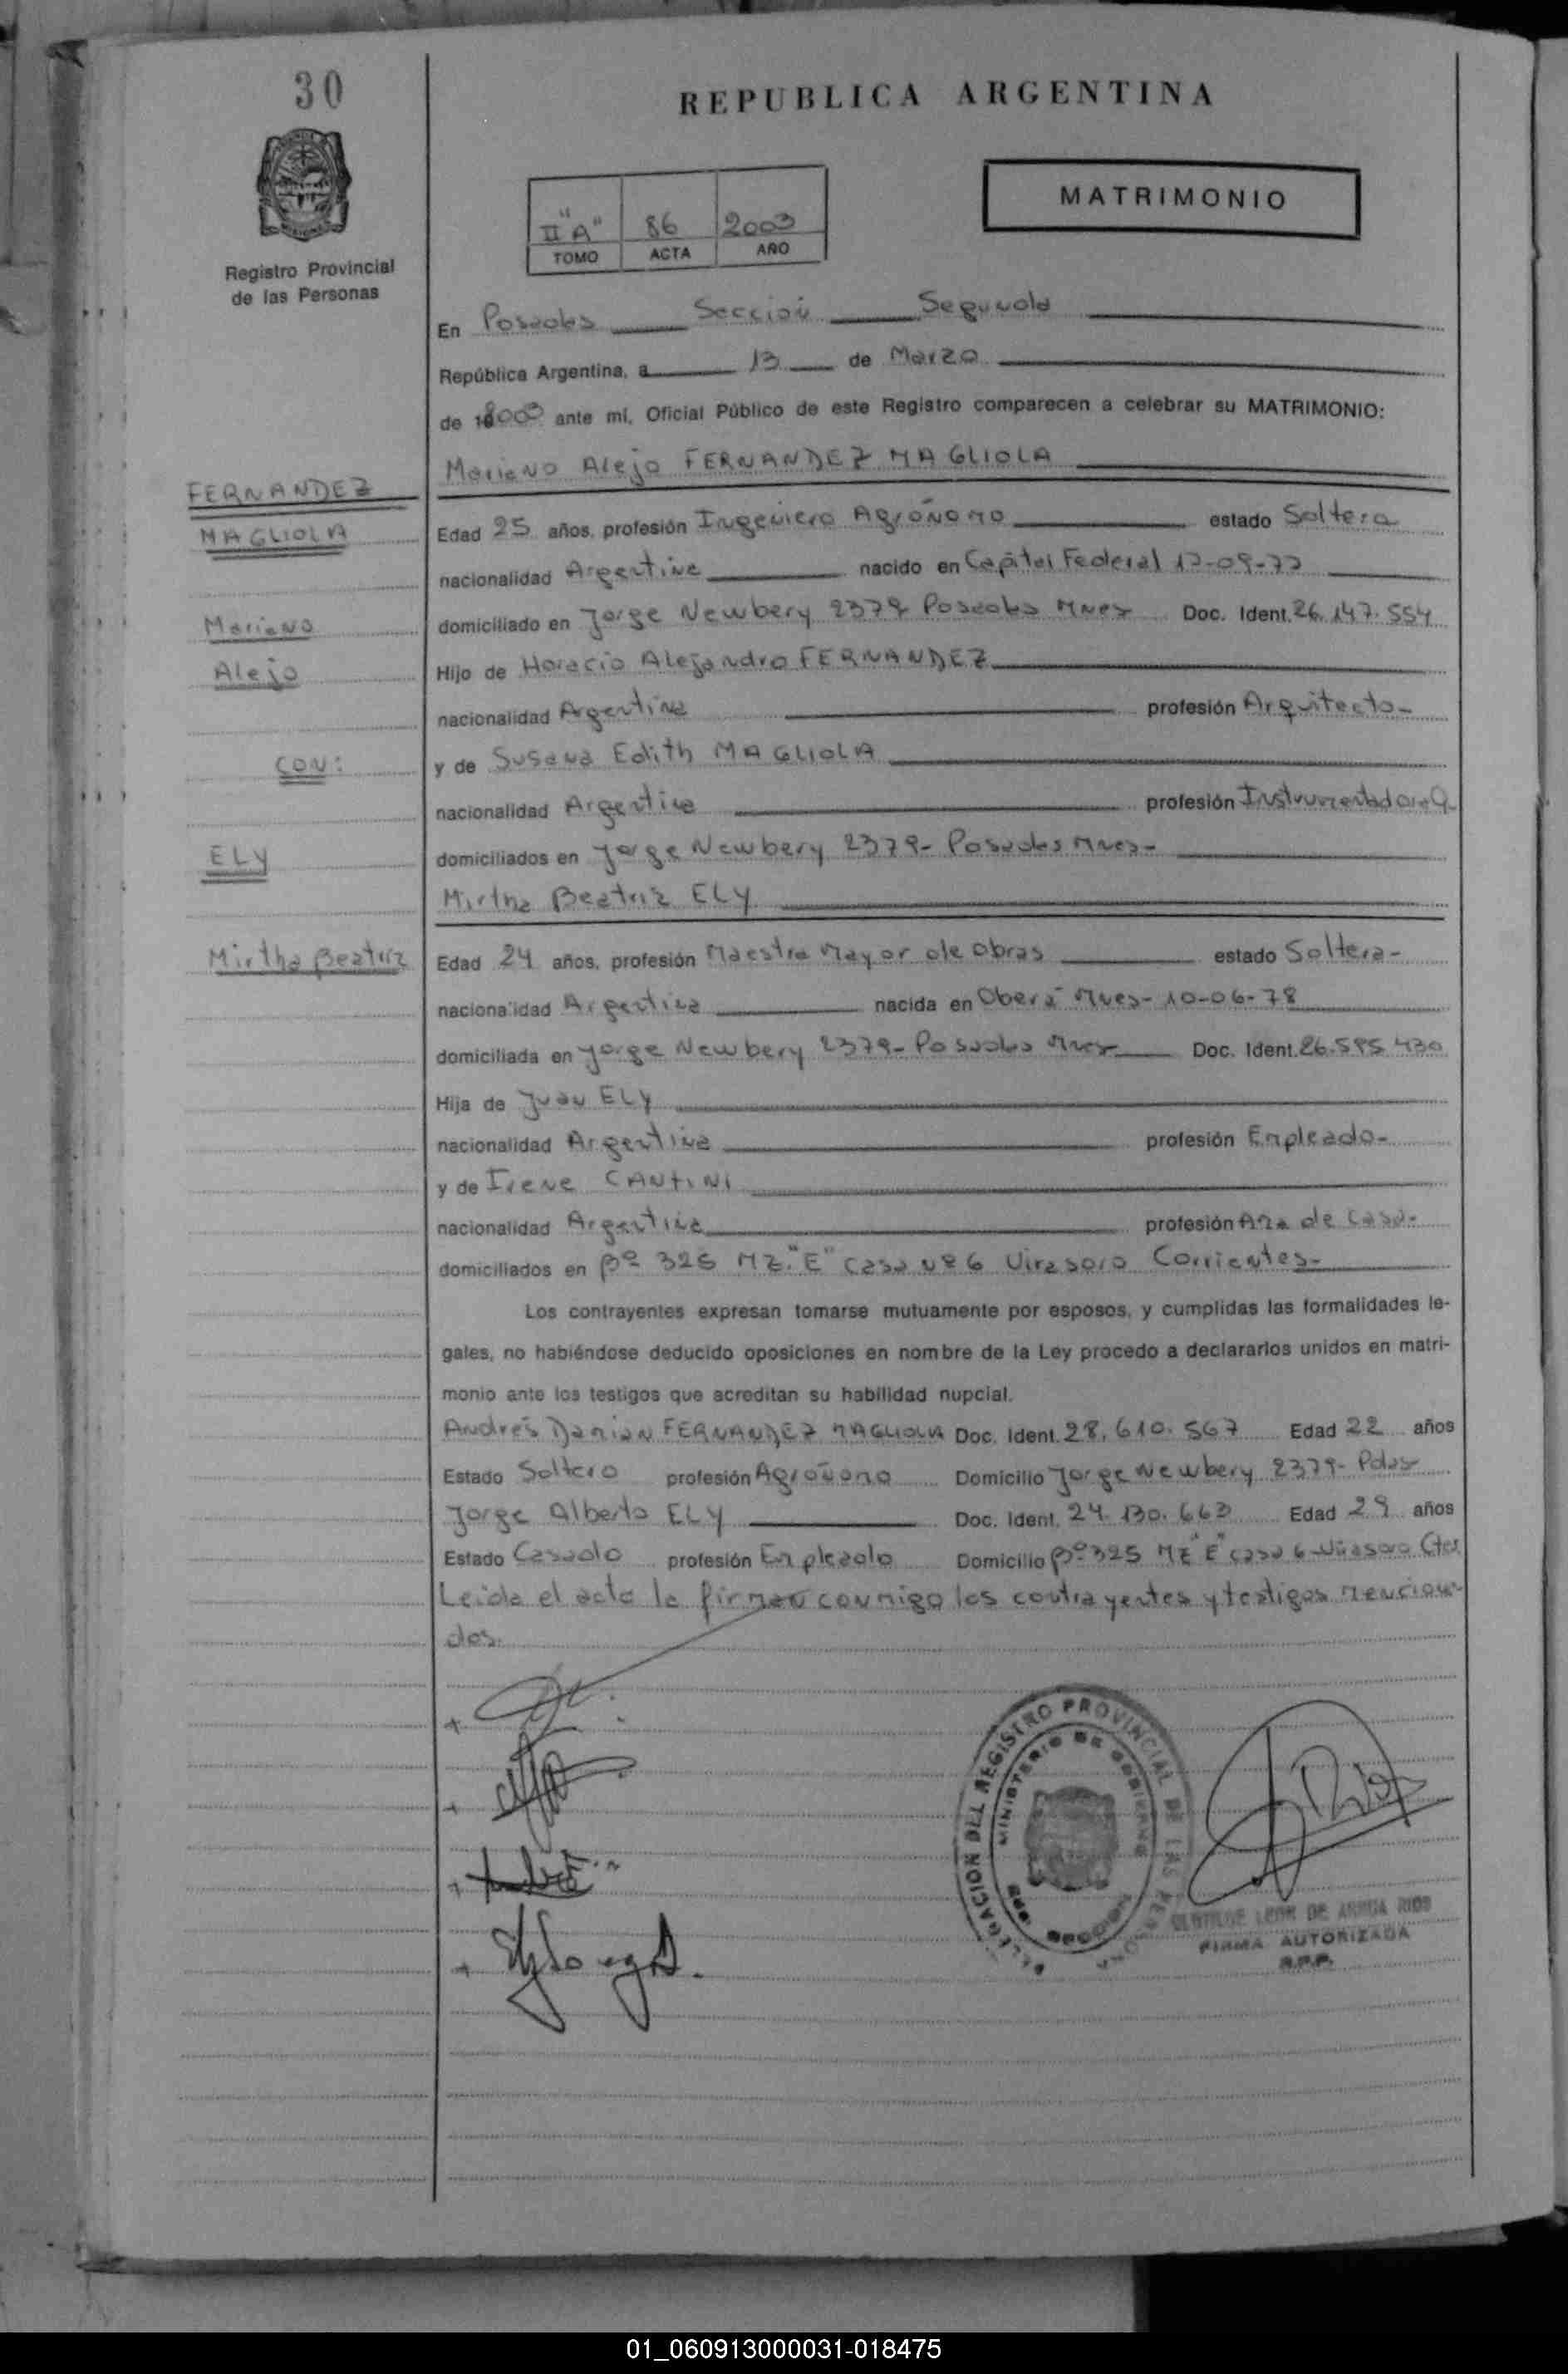 30
REPUBLICA ARGENTINA
MATRIMONIO
II "A" 86 2003
TOMO ACTA AÑO
Registro Provincial
de las Personas
En Posadas Sección Segunda
República Argentina, a 13 de Marzo
de 2003 ante mí, Oficial Público de este Registro comparecen a celebrar su MATRIMONIO:
Mariano Alejo FERNANDEZ MAGLIOLA
FERNANDEZ
MAGLIOLA
Mariano
Alejo
CON:
ELY
Mirtha Beatriz
Edad 25 años, profesión Ingeniero Agrónomo estado Soltero
nacionalidad Argentina nacido en Capital Federal
domiciliado en Jorge Newbery 2379 Posadas Mnes Doc. Ident. 26.147.554
Hijo de Horacio Alejandro FERNANDEZ
nacionalidad Argentina profesión Arquitecto-
y de Susana Edith MAGLIOLA
nacionalidad Argentina profesión
domiciliados en Jorge Newbery 2379- Posadas Mnes-
Mirtha Beatriz ELY
Edad 24 años, profesión Maestra Mayor de Obras estado Soltera-
nacionalidad Argentina nacida en Oberá Mnes- 10-06-78
domiciliada en Jorge Newbery 2379- Posadas Mnes Doc. Ident. 26.595.430
Hija de Juan ELY
nacionalidad Argentina profesión Empleado-
y de Irene CANTINI
nacionalidad Argentina profesión Ama de Casa-
domiciliados en Bº 325 MZ. "E" Casa Nº 6 Virasoro Corrientes-
Los contrayentes expresan tomarse mutuamente por esposos, y cumplidas las formalidades le-
gales, no habiéndose deducido oposiciones en nombre de la Ley procedo a declararlos unidos en matri-
monio ante los testigos que acreditan su habilidad nupcial.
Andrés Damian FERNANDEZ MAGLIOLA Doc. Ident. 28.610.567 Edad 22 años
Estado Soltero profesión Agrónomo Domicilio Jorge Newbery 2379- Pdas
Jorge Alberto ELY Doc. Ident. 24.130.663 Edad 29 años
Estado Casado profesión Empleado Domicilio Bº 325 MZ "E" casa 6- Virasoro Ctes
Leida el acta la firman conmigo los contrayentes y testigos menciona-
dos.
DELEGACION DEL REGISTRO PROVINCIAL DE LAS PERSONAS
MINISTERIO DE GOBIERNO
FIRMA AUTORIZADA
R.P.P.
01_060913000031-018475